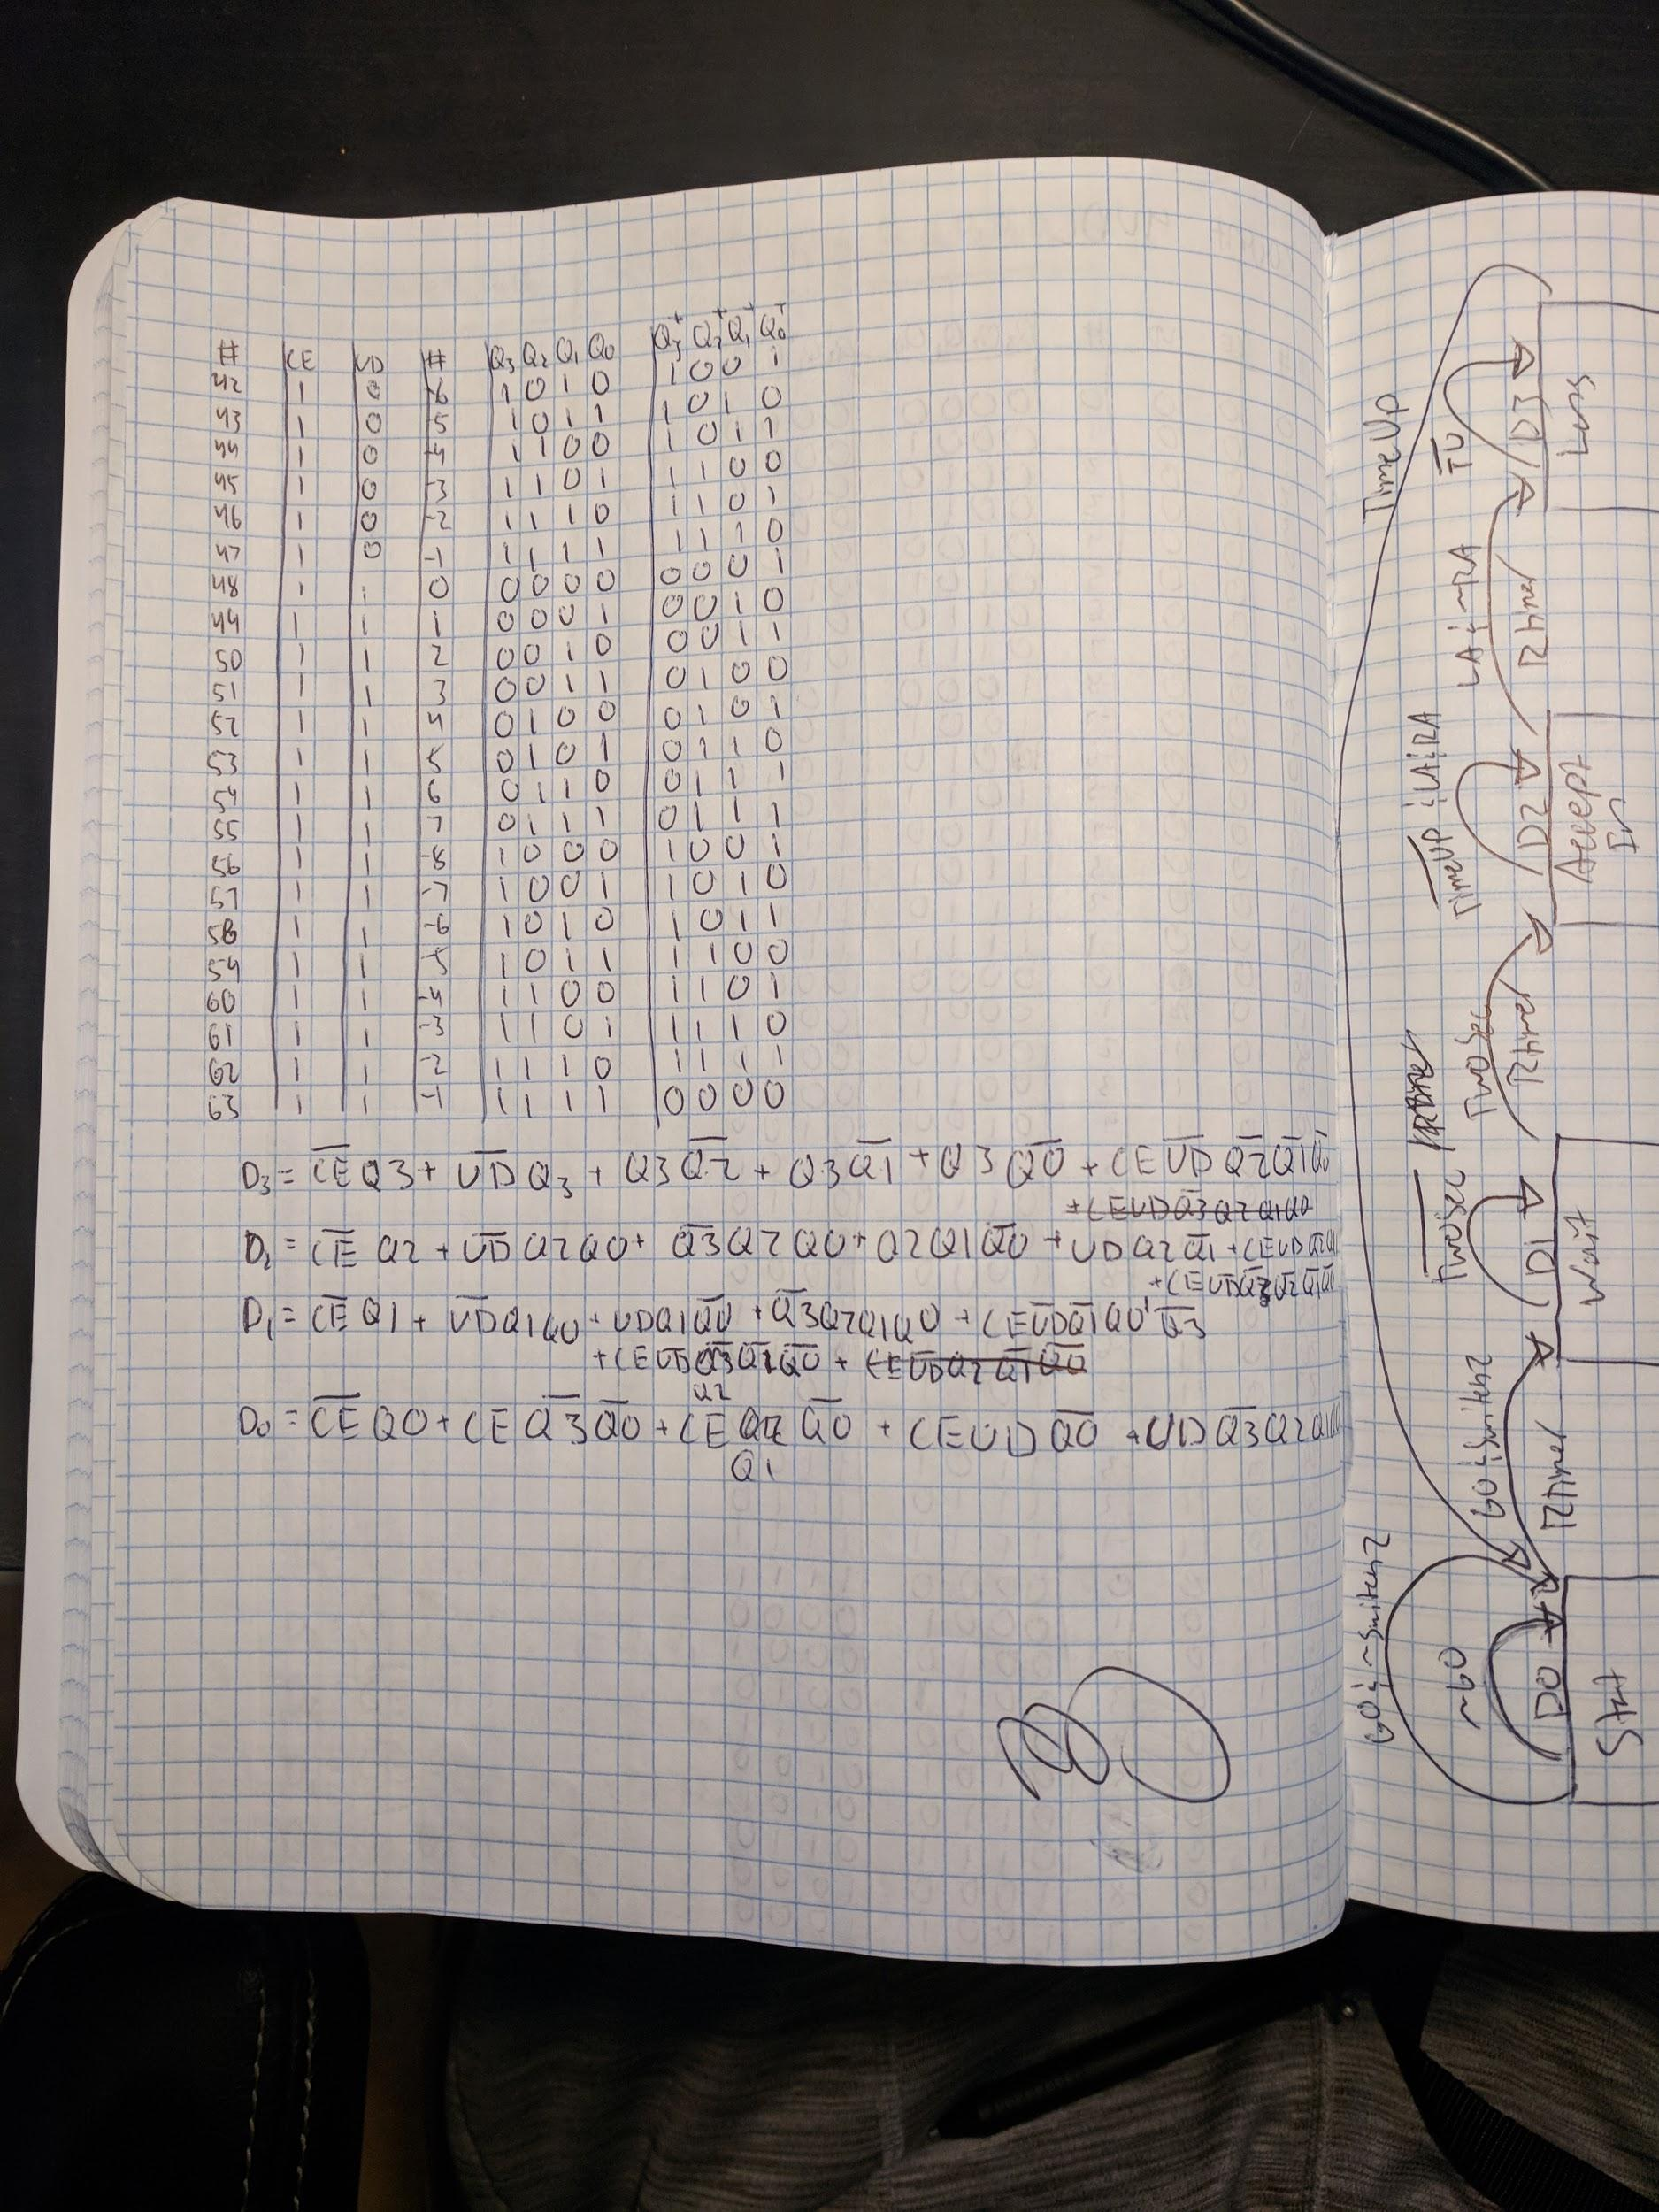 # CE UD # Q3 Q2 Q1 Q0 Q3+ Q2+ Q1+ Q0+
42 1 0 -6 1 0 1 0 1 0 0 1
43 1 0 -5 1 0 1 1 1 0 1 0
44 1 0 -4 1 1 0 0 1 0 1 1
45 1 0 -3 1 1 0 1 1 1 0 0
46 1 0 -2 1 1 1 0 1 1 0 1
47 1 0 -1 1 1 1 1 1 1 1 0
48 1 1 0 0 0 0 0 0 0 0 1
49 1 1 1 0 0 0 1 0 0 1 0
50 1 1 2 0 0 1 0 0 0 1 1
51 1 1 3 0 0 1 1 0 1 0 0
52 1 1 4 0 1 0 0 0 1 0 1
53 1 1 5 0 1 0 1 0 1 1 0
54 1 1 6 0 1 1 0 0 1 1 1
55 1 1 7 0 1 1 1 0 1 1 1
56 1 1 -8 1 0 0 0 1 0 0 1
57 1 1 -7 1 0 0 1 1 0 1 0
58 1 1 -6 1 0 1 0 1 0 1 1
59 1 1 -5 1 0 1 1 1 1 0 0
60 1 1 -4 1 1 0 0 1 1 0 1
61 1 1 -3 1 1 0 1 1 1 1 0
62 1 1 -2 1 1 1 0 1 1 1 1
63 1 1 -1 1 1 1 1 0 0 0 0
D3 = C̅E̅ Q3 + U̅D̅ Q3 + Q3 Q̅2̅ + Q3 Q̅1̅ + Q3 Q̅0̅ + CE U̅D̅ Q̅2̅ Q̅1̅
+ CE UD Q̅3̅ Q2 Q1 Q0
D2 = C̅E̅ Q2 + U̅D̅ Q2 Q0 + Q̅3̅ Q2 Q0 + Q2 Q1 Q̅0̅ + UD Q2 Q̅1̅ + CE UD
+ CE U̅D̅ Q̅3̅ Q̅2̅ Q̅1̅
D1 = C̅E̅ Q1 + U̅D̅ Q1 Q0 + UD Q1 Q̅0̅ + Q̅3̅ Q2 Q1 Q0 + CE U̅D̅ Q̅1̅ Q0 Q̅3̅
+ CE U̅D̅ Q̅1̅ Q̅0̅ + CE U̅D̅ Q2 Q̅1̅ Q̅0̅
Q2
D0 = C̅E̅ Q0 + CE Q̅3̅ Q̅0̅ + CE Q2 Q̅0̅ + CE UD Q̅0̅ + UD Q̅3̅ Q2 Q1
Q1
GO ; ~Switch2
~GO
D0
Start
GO ; Switch2
Rtimer
T̅w̅o̅S̅e̅c̅
D1
Wait
TwoSec
Rtimer
T̅i̅m̅e̅U̅P̅ ; LA ; RA
D2
Accept
In
LA ; ~RA
Rtimer
TimeUp
T̅U̅
D3